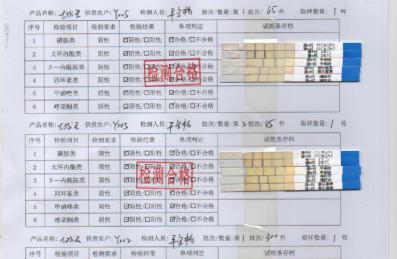 产品名称: 供货农户: Y005 检测人员: 批次/数量: 第1批次/65 取样数量: 1 枚
序号 检验项目 检测要求 检验结果 单项判定 试纸条存档
1 磺胺类 阴性 ☑阴性/☐阳性 ☑合格/☐不合格
2 大环内酯类 阴性 ☑阴性/☐阳性 ☑合格/☐不合格
3 β一内酰胺类 阴性 ☑阴性/☐阳性 ☑合格/☐不合格
4 四环素类 阴性 ☑阴性/☐阳性 ☑合格/☐不合格
5 甲硝唑类 阴性 ☑阴性/☐阳性 ☑合格/☐不合格
6 喹诺酮类 阴性 ☑阴性/☐阳性 ☑合格/☐不合格
检测合格
产品名称: 供货农户: Y003 检测人员: 批次/数量: 第 取样数量: 1 枚
序号 检验项目 检测要求 检验结果 单项判定 试纸条存档
1 磺胺类 阴性 ☑阴性/☐阳性 ☑合格/☐不合格
2 大环内酯类 阴性 ☑阴性/☐阳性 ☑合格/☐不合格
3 β一内酰胺类 阴性 ☑阴性/☐阳性 ☑合格/☐不合格
4 四环素类 阴性 ☑阴性/☐阳性 ☑合格/☐不合格
5 甲硝唑类 阴性 ☑阴性/☐阳性 ☑合格/☐不合格
6 喹诺酮类 阴性 ☑阴性/☐阳性 ☑合格/☐不合格
检测合格
产品名称: 供货农户: Y002 检测人员: 批次/数量: 第1批次/300 取样数量: 1 枚
序号 检验项目 检测要求 检验结果 单项判定 试纸条存档